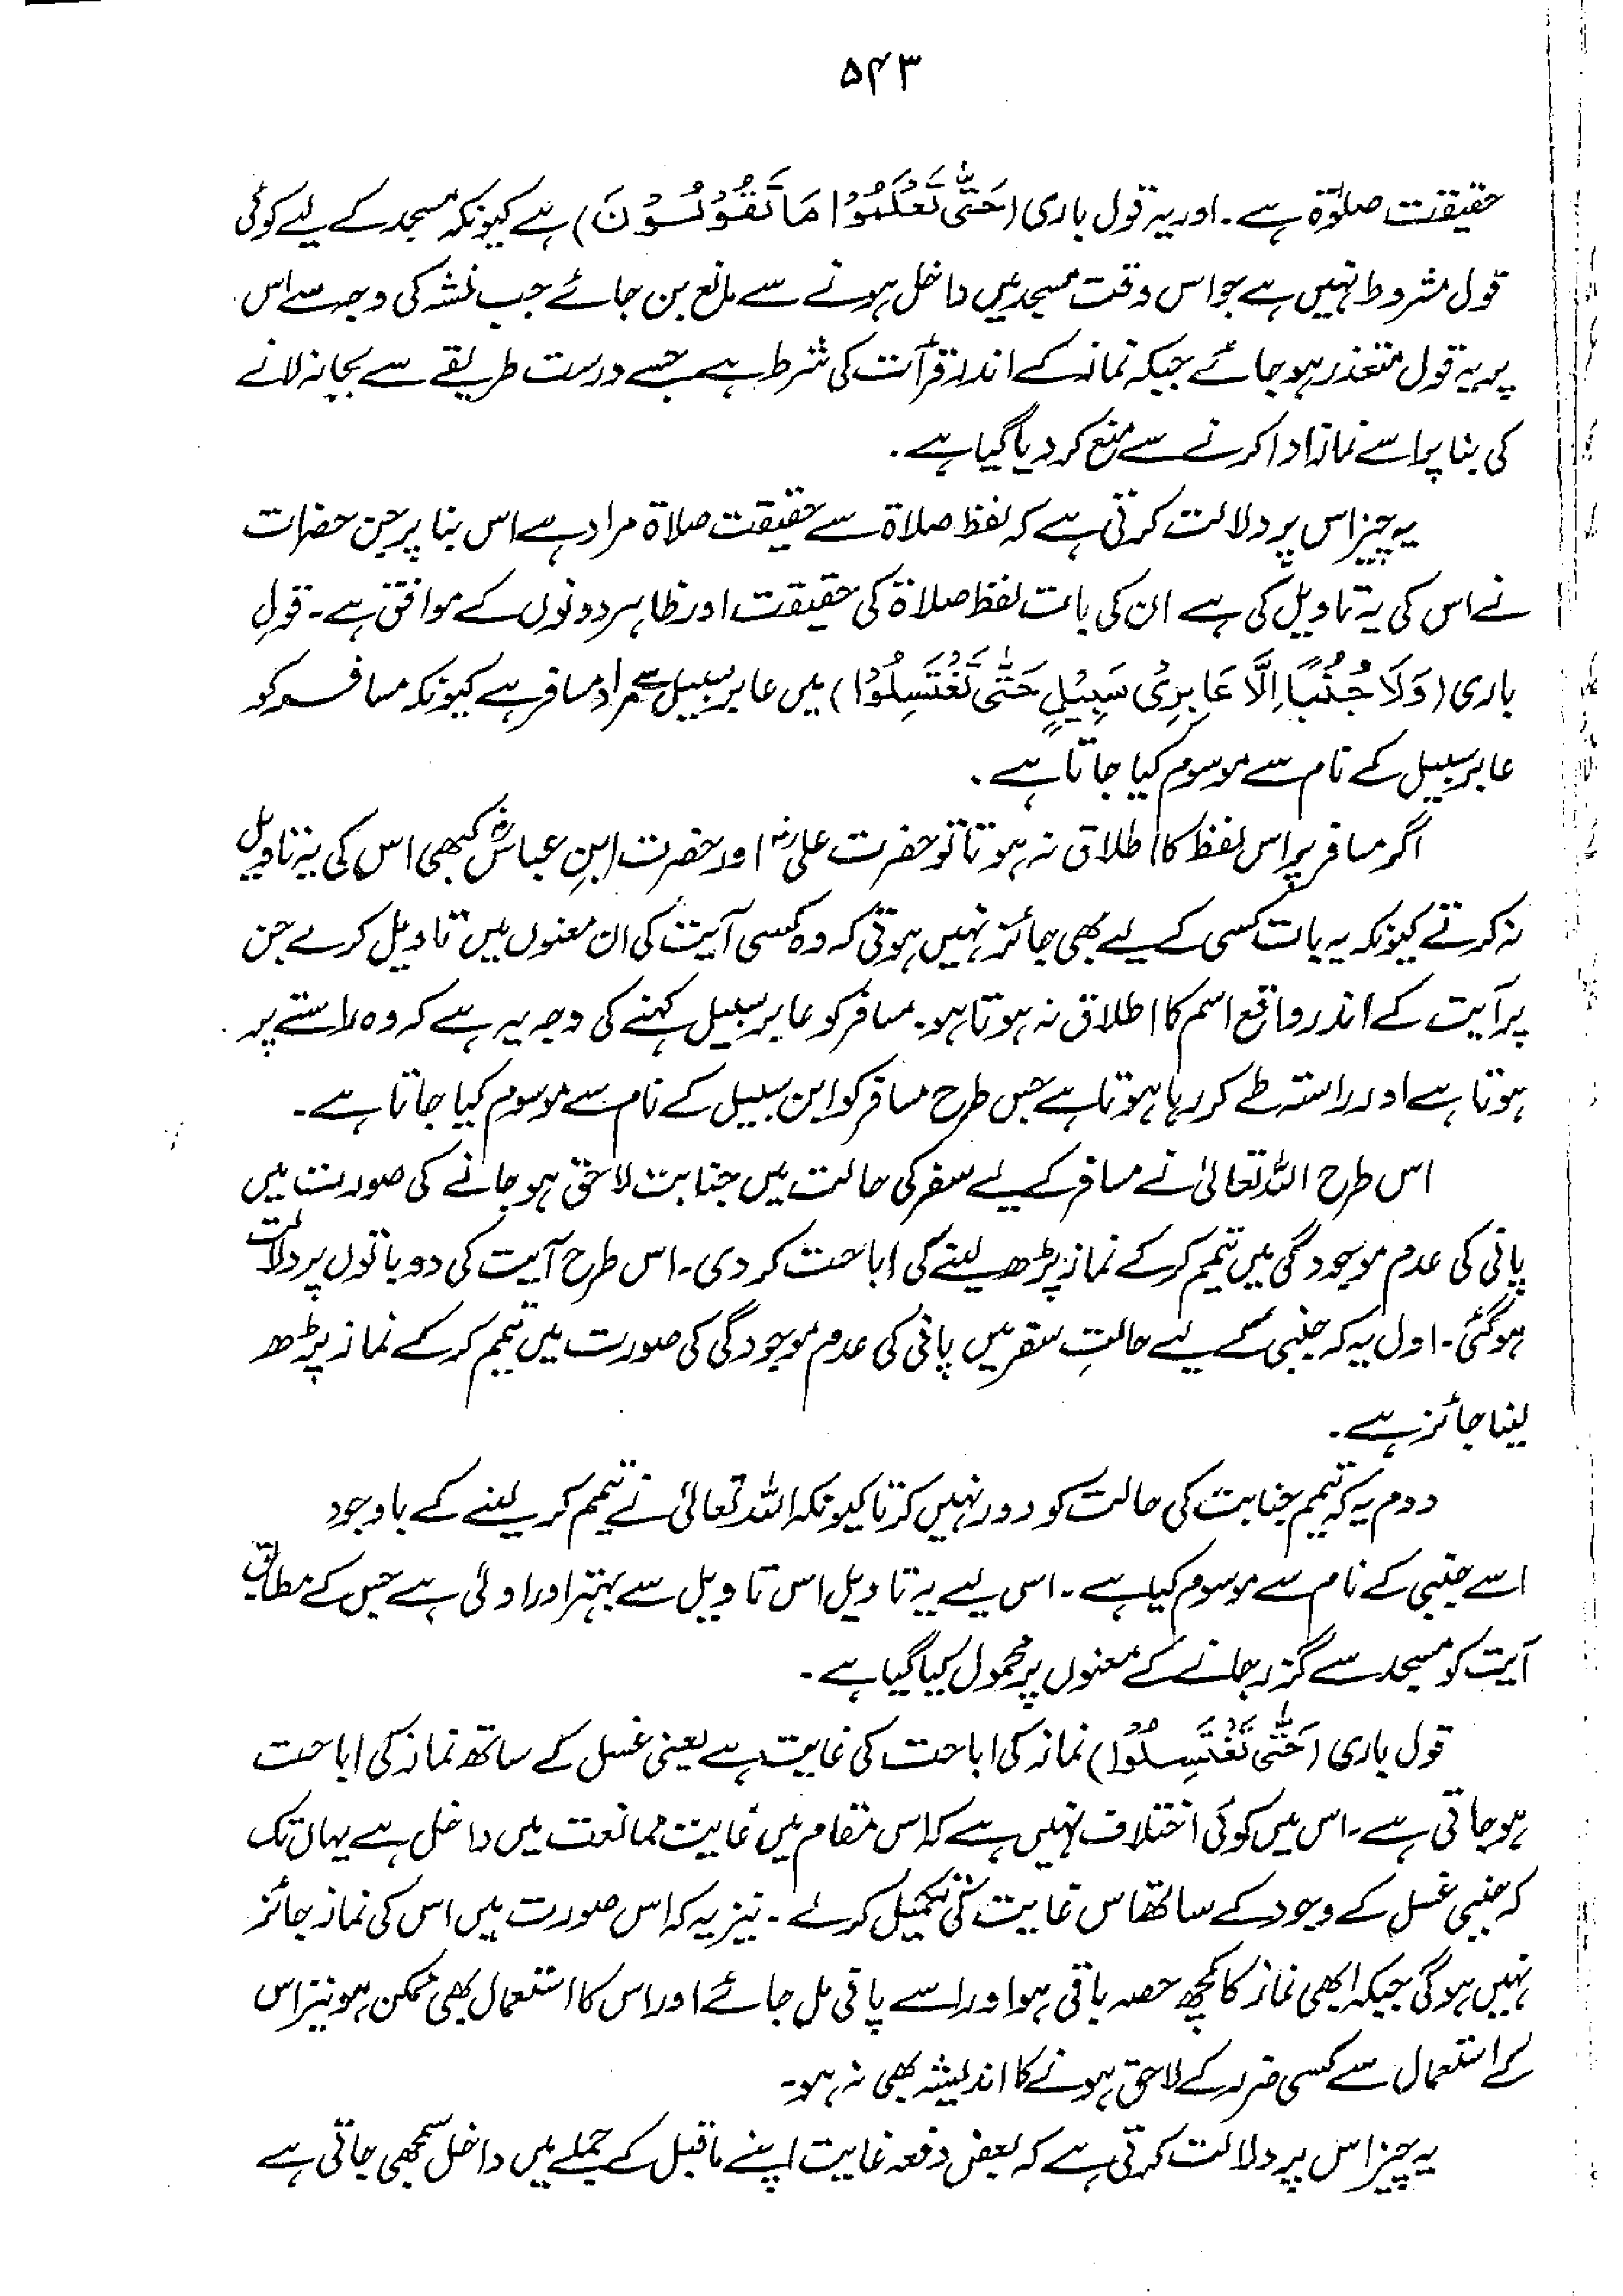 ۵۴۳
حقیقت صلوٰۃ ہے۔ اور یہ قول باری (حَتّٰی تَعْلَمُوْا مَا تَقُوْلُوْنَ) ہے کیونکہ مسجد کے لیے کوئی
قول مشروط نہیں ہے جو اس وقت مسجد میں داخل ہونے سے مانع بن جائے جب نشہ کی وجہ سے اس
پر یہ قول متعذر ہو جائے جبکہ نماز کے اندر قرآت کی شرط ہے جسے درست طریقے سے بجا نہ لانے
کی بنا پر اسے نماز ادا کرنے سے منع کر دیا گیا ہے۔
یہ چیز اس پر دلالت کرتی ہے کہ لفظ صلاۃ سے حقیقت صلاۃ مراد ہے اس بنا پر جن حضرات
نے اس کی یہ تاویل کی ہے ان کی بات لفظ صلاۃ کی حقیقت اور ظاہر دونوں کے موافق ہے۔ قولِ
باری (وَلَا جُنُبًا اِلَّا عَابِرِیْ سَبِیْلٍ حَتّٰی تَغْتَسِلُوْا) میں عابر سبیل سے مراد مسافر ہے کیونکہ مسافر کو
عابر سبیل کے نام سے موسوم کیا جاتا ہے۔
اگر مسافر پر اس لفظ کا اطلاق نہ ہوتا تو حضرت علیؓ اور حضرت ابنِ عباسؓ کبھی اس کی یہ تاویل
نہ کرتے کیونکہ یہ بات کسی کے لیے بھی جائز نہیں ہوتی کہ وہ کسی آیت کی ان معنوں میں تاویل کرے جن
پر آیت کے اندر واقع اسم کا اطلاق نہ ہوتا ہو۔ مسافر کو عابر سبیل کہنے کی وجہ یہ ہے کہ وہ راستے پر
ہوتا ہے اور راستہ طے کر رہا ہوتا ہے جس طرح مسافر کو ابن سبیل کے نام سے موسوم کیا جاتا ہے۔
اس طرح اللہ تعالیٰ نے مسافر کے لیے سفر کی حالت میں جنابت لاحق ہو جانے کی صورت میں
پانی کی عدم موجودگی میں تیمم کر کے نماز پڑھ لینے کی اباحت کر دی۔ اس طرح آیت کی دو باتوں پر دلالت
ہو گئی۔ اول یہ کہ جنبی کے لیے حالتِ سفر میں پانی کی عدم موجودگی کی صورت میں تیمم کر کے نماز پڑھ
لینا جائز ہے۔
دوم یہ کہ تیمم جنابت کی حالت کو دور نہیں کرتا کیونکہ اللہ تعالیٰ نے تیمم کر لینے کے باوجود
اسے جنبی کے نام سے موسوم کیا ہے۔ اس لیے یہ تاویل اس تاویل سے بہتر اور اولیٰ ہے جس کے مطابق
آیت کو مسجد سے گزر جانے کے معنوں پر محمول کیا گیا ہے۔
قول باری (حَتّٰی تَغْتَسِلُوْا) نماز کی اباحت کی غایت ہے یعنی غسل کے ساتھ نماز کی اباحت
ہو جاتی ہے۔ اس میں کوئی اختلاف نہیں ہے کہ اس مقام میں غایت ممانعت میں داخل ہے یہاں تک
کہ جنبی غسل کے وجود کے ساتھ اس غایت کی تکمیل کر لے۔ نیز یہ کہ اس صورت میں اس کی نماز جائز
نہیں ہوگی جبکہ ابھی نماز کا کچھ حصہ باقی ہو اور اسے پانی مل جائے اور اس کا استعمال بھی ممکن ہو نیز اس
کے استعمال سے کسی ضرر کے لاحق ہونے کا اندیشہ بھی نہ ہو۔
یہ چیز اس پر دلالت کرتی ہے کہ بعض دفعہ غایت اپنے ماقبل کے جملے میں داخل سمجھی جاتی ہے